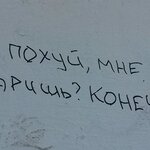 ПОХУЙ, МНЕ
АРИШЬ? КОНЕЧ